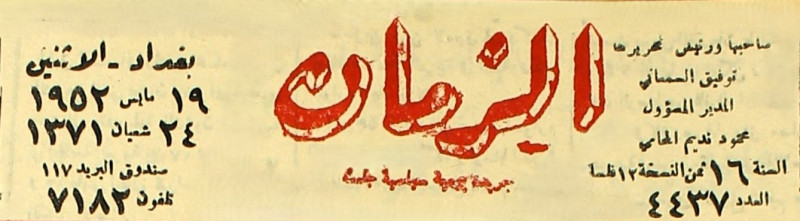 صاحبها ورئيس تحريرها
توفيق السمعاني
المدير المسؤول
محمود نديم المحامي
السنة ١٦ ثمن النسخة ١٢ فلسا
العدد ٤٤٣٧
الزمان
جريدة يومية سياسية جامعة
بغداد - الاثنين
١٩ مايس ١٩٥٢
٢٤ شعبان ١٣٧١
صندوق البريد ١١٧
تلفون ٧١٨٣